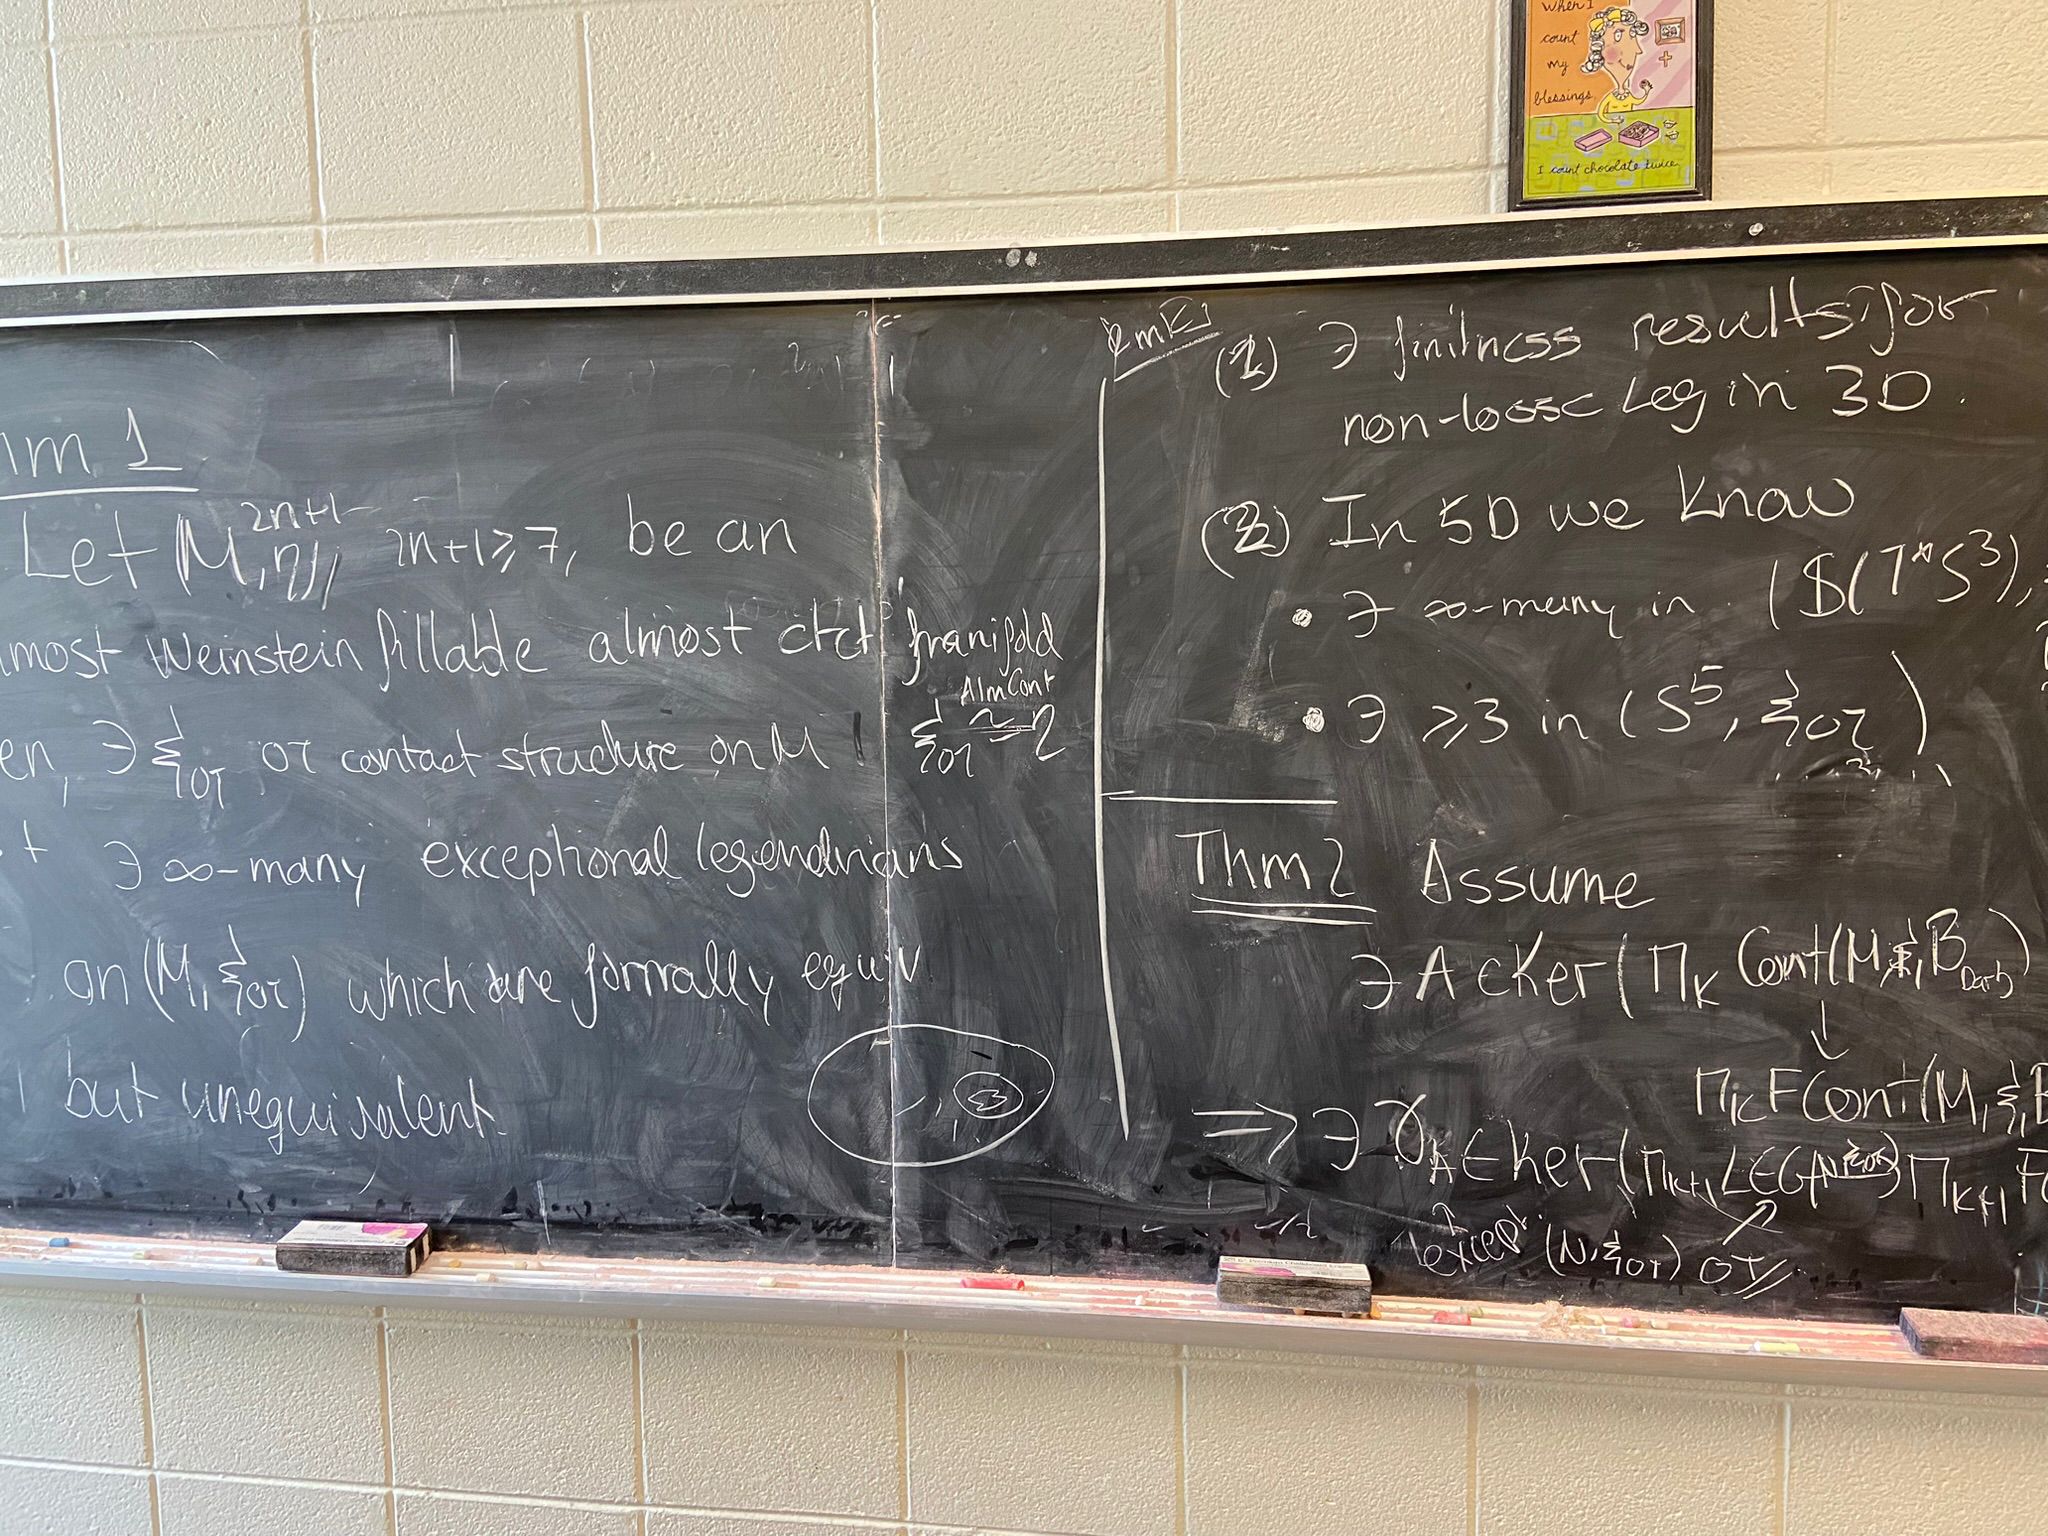 When I
count
my
blessings
I count chocolate twice
hm 1
Let (M^{2n+1}, η), 2n+1 ≥ 7, be an
lmost Weinstein fillable almost ctct manifold
en, ∃ ξ_{OT} OT contact structure on M | ξ_{OT} ≃^{AlmCont} η
t ∃ ∞-many exceptional legendrians
on (M, ξ_{OT}) which are formally equiv
but unequivalent.
(1) ∃ finitness results for
non-loose Leg in 3D.
(2) In 5D we know
• ∃ ∞-many in ($(T*S^3),
• ∃ ≥3 in (S^5, ξ_{OT})
Thm 2 Assume
∃ A ∈ Ker(Π_K Cont(M, ξ, B_{Darb})
↓
Π_K FCont(M, ξ, B
⟹ ∃ γ_A ∈ Ker(Π_{K+1} LEG(N, ξ_{OT}) Π_{K+1} F
except. (N, ξ_{OT}) OT